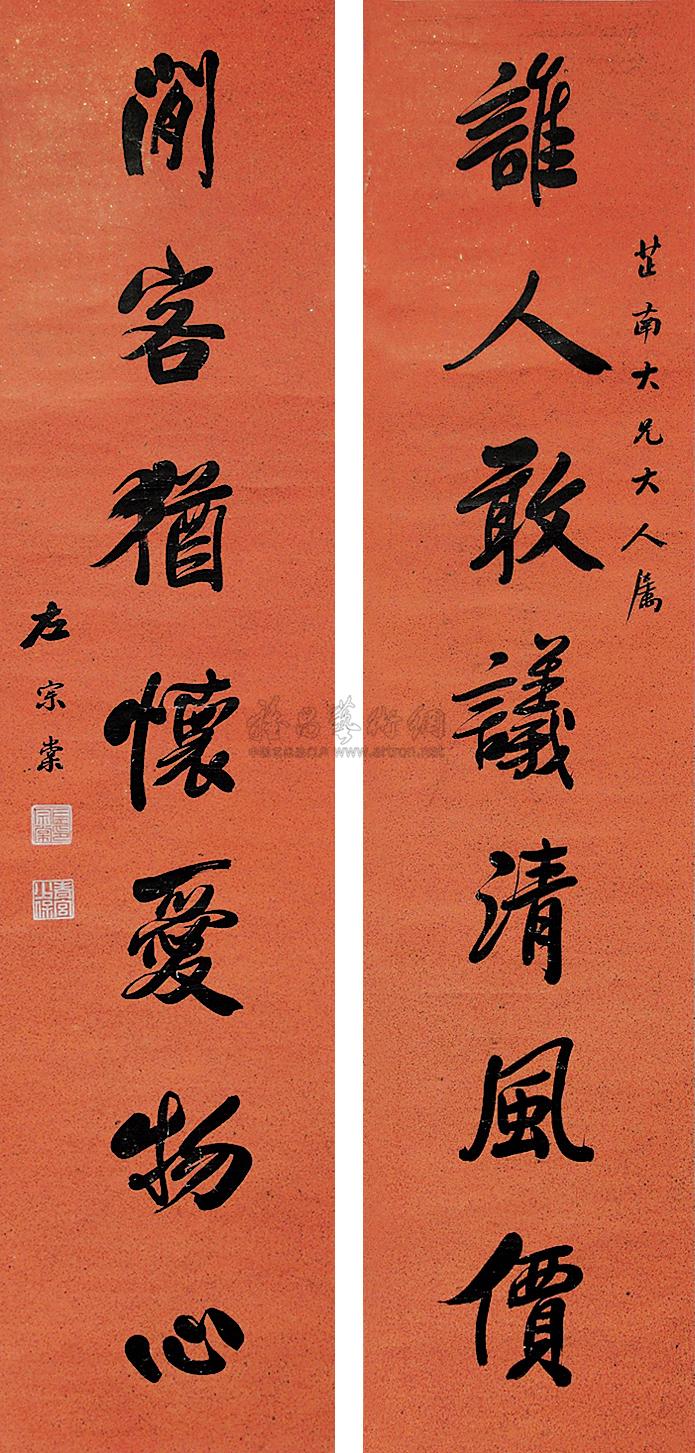 誰人敢議清風價
芷南大兄大人屬
閒客猶懷愛物心
左宗棠
www.artron.net